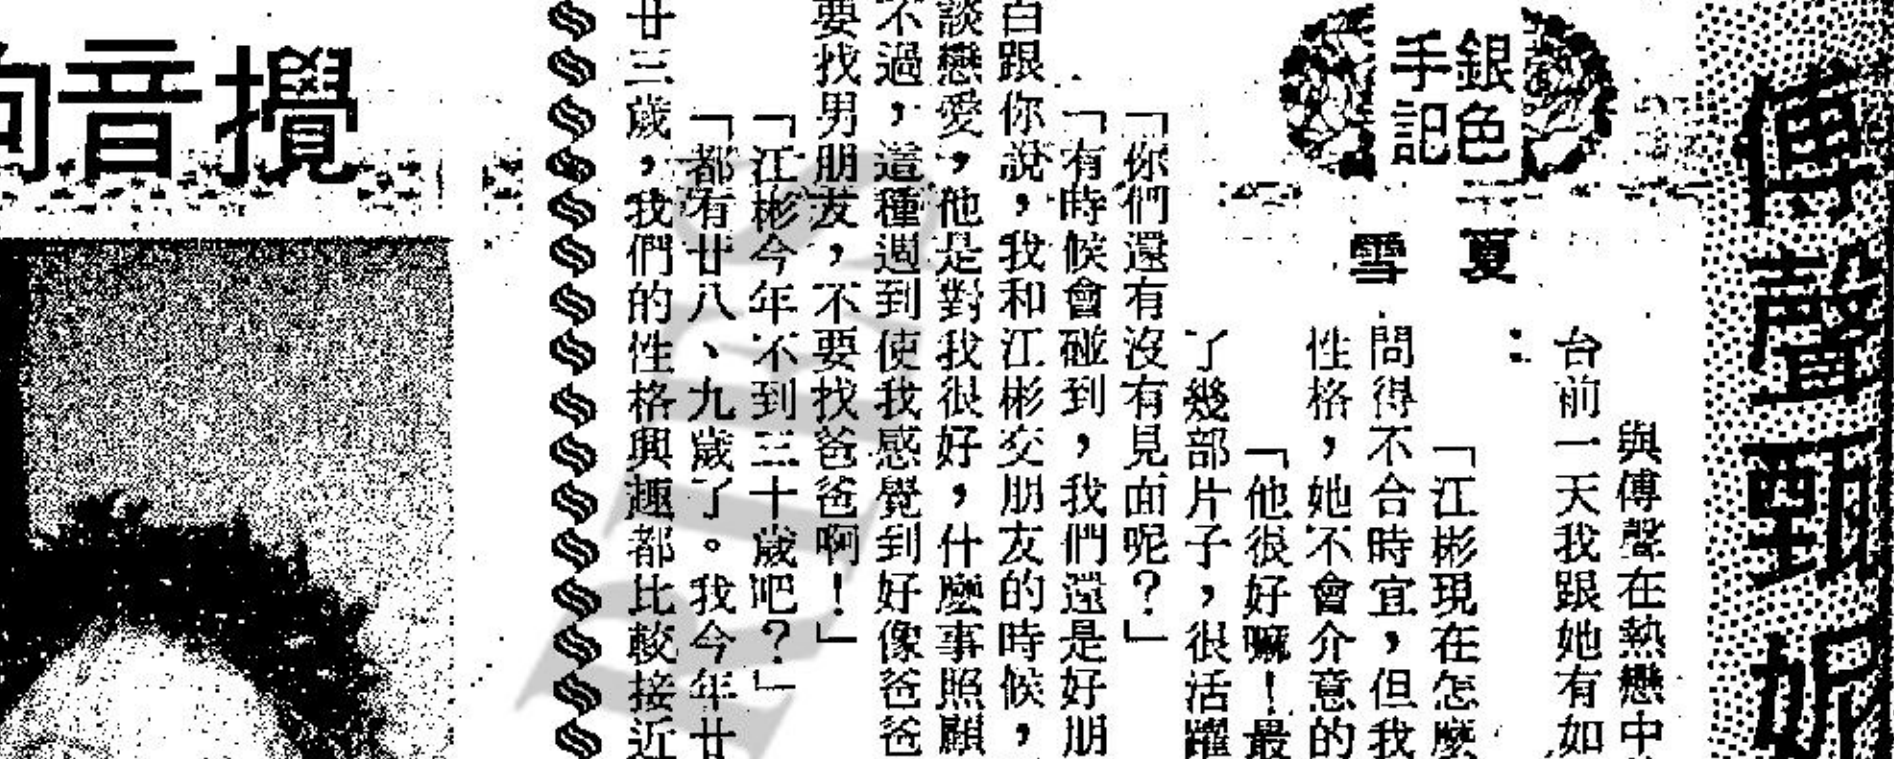 傅聲甄妮
銀色
手記
夏
雪
與傅聲在熱戀中
台前一天我跟她有如
：
「江彬現在怎麼
問得不合時宜，但我
性格，她不會介意的
「他很好嘛！最
了幾部片子，很活躍
「你們還有沒有見面呢？」
「有時候會碰到，我們還是好朋
白跟你說，我和江彬交朋友的時候，
談戀愛，他是對我很好，什麼事照顧
不過，這種週到使我感覺到好像爸爸
要找男朋友，不要找爸爸啊！」
「江彬今年不到三十歲吧？」
「都有廿八、九歲了。我今年廿
廿三歲，我們的性格興趣都比較接近
攪音响